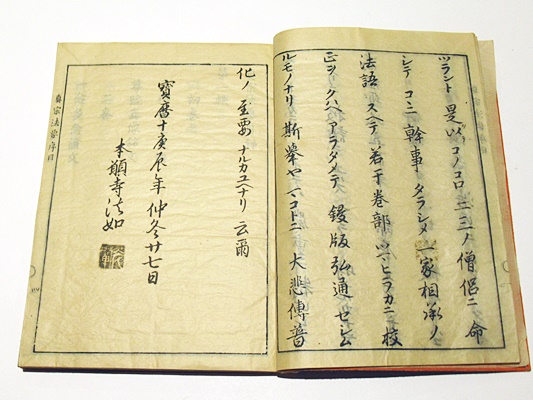 ツラント是以コノコロ二三ノ僧侶ニ命
シテコニ幹事タラシメ一家相承ノ
法語スヘテ若干巻部ツハヒラカニ校
正ヲクハヘアラタメテ鏤版弘通セシム
ルモノナリ斯挙ヤマコトニ大悲傳普
化ノ至要ナルカユヘナリ云爾
寶暦十庚辰年仲冬廿七日
本願寺法如
真宗法要序